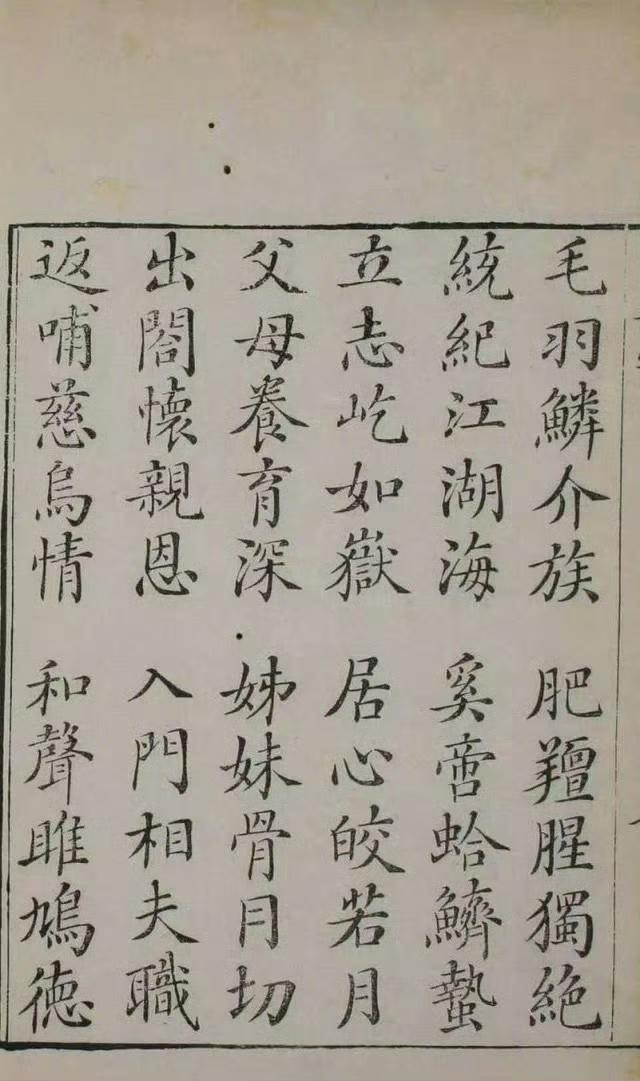 毛羽鱗介族 肥羶腥獨絶
統紀江湖海 奚啻蛤鱭蟄
立志屹如嶽 居心皎若月
父母養育深 姊妹骨月切
出閤懷親恩 入門相夫職
返哺慈烏情 和聲雎鳩徳